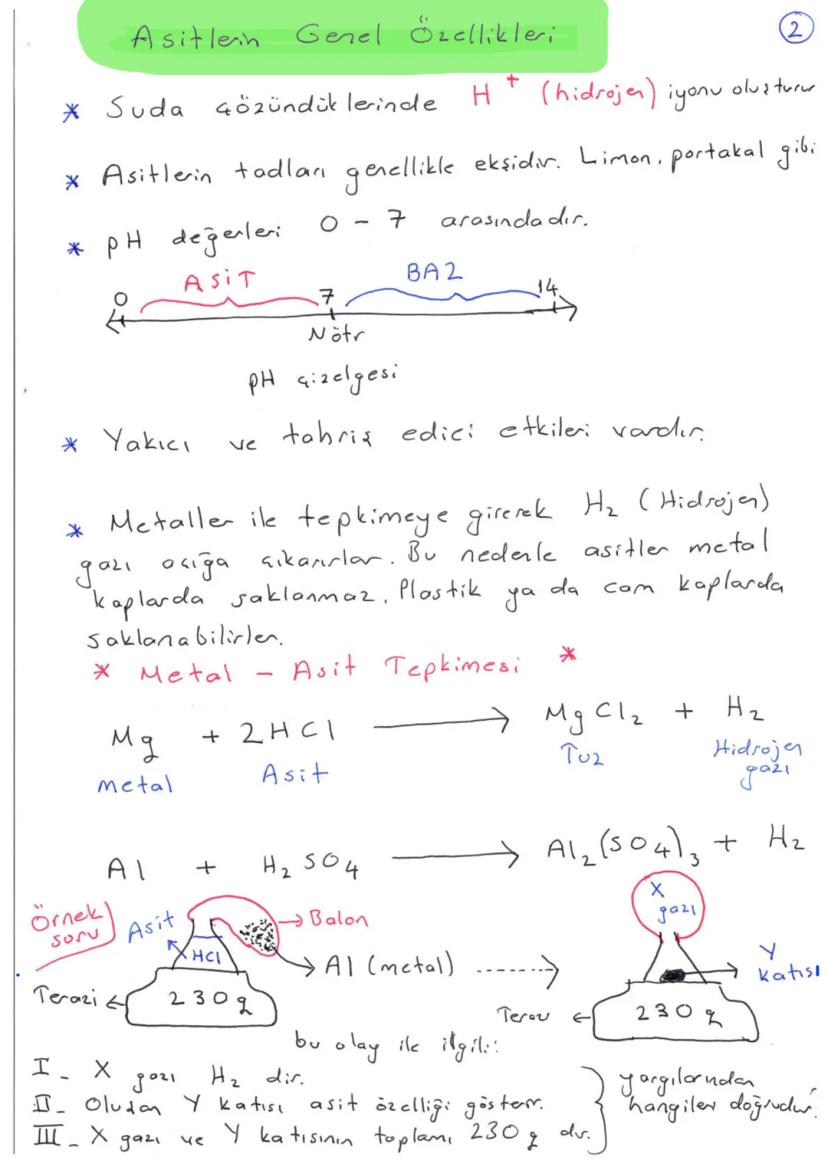 Asitlerin Genel Özellikleri
2
* Suda çözündüklerinde H⁺ (hidrojen) iyonu oluşturur
* Asitlerin tadları genellikle ekşidir. Limon, portakal gibi
* pH değerleri 0 - 7 arasındadır.
ASİT BAZ
0 7 14
Nötr
pH çizelgesi
* Yakıcı ve tahriş edici etkileri vardır.
* Metaller ile tepkimeye girerek H₂ (Hidrojen)
gazı açığa çıkarırlar. Bu nedenle asitler metal
kaplarda saklanmaz. Plastik ya da cam kaplarda
saklanabilirler.
* Metal - Asit Tepkimesi *
Mg + 2HCl → MgCl₂ + H₂
metal Asit Tuz Hidrojen
gazı
Al + H₂SO₄ → Al₂(SO₄)₃ + H₂
Örnek
soru
Asit
HCl
→ Balon
→ Al (metal)
Terazi ←
230 g
X
gazı
Y
katısı
Terazi ←
230 g
bu olay ile ilgili:
I_ X gazı H₂ dir.
II_ Oluşan Y katısı asit özelliği gösterir.
III_ X gazı ve Y katısının toplamı 230 g dır.
yargılarından
hangileri doğrudur.